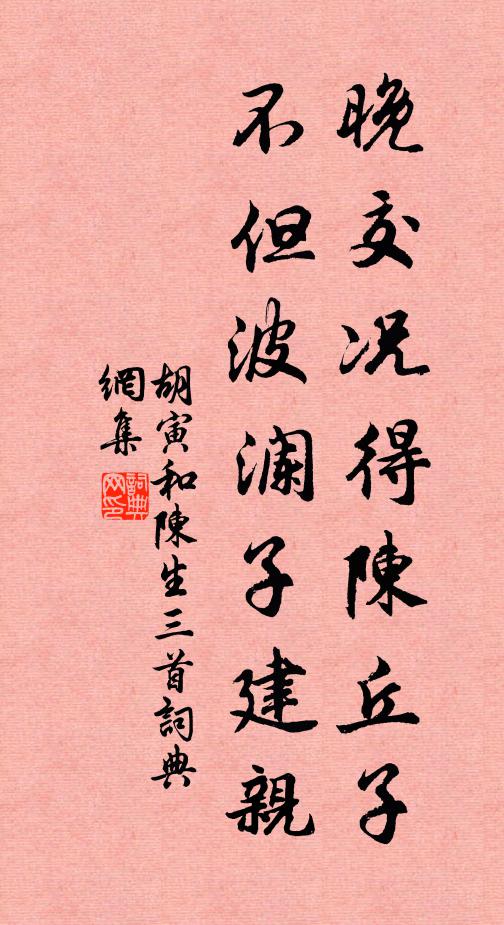 晚交況得陳丘子
不但波瀾子建親
胡寅和陳生三首詞典
網集
詞典
网印